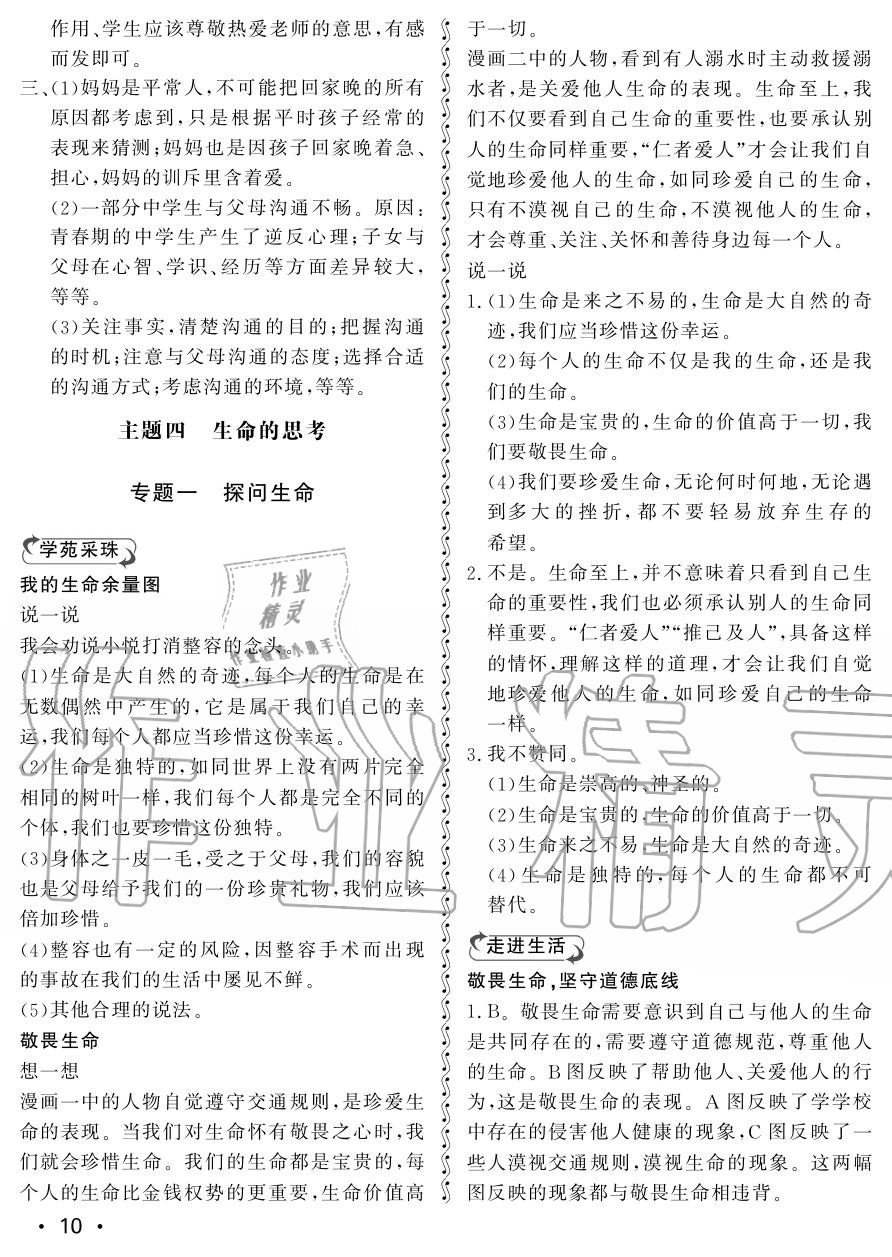 作用、学生应该尊敬热爱老师的意思,有感
而发即可。
三、(1)妈妈是平常人,不可能把回家晚的所有
原因都考虑到,只是根据平时孩子经常的
表现来猜测;妈妈也是因孩子回家晚着急、
担心,妈妈的训斥里含着爱。
(2)一部分中学生与父母沟通不畅。原因:
青春期的中学生产生了逆反心理;子女与
父母在心智、学识、经历等方面差异较大,
等等。
(3)关注事实,清楚沟通的目的;把握沟通
的时机;注意与父母沟通的态度;选择合适
的沟通方式;考虑沟通的环境,等等。
主题四 生命的思考
专题一 探问生命
学苑采珠
我的生命余量图
说一说
我会劝说小悦打消整容的念头。
(1)生命是大自然的奇迹,每个人的生命是在
无数偶然中产生的,它是属于我们自己的幸
运,我们每个人都应当珍惜这份幸运。
(2)生命是独特的,如同世界上没有两片完全
相同的树叶一样,我们每个人都是完全不同的
个体,我们也要珍惜这份独特。
(3)身体之一皮一毛,受之于父母,我们的容貌
也是父母给予我们的一份珍贵礼物,我们应该
倍加珍惜。
(4)整容也有一定的风险,因整容手术而出现
的事故在我们的生活中屡见不鲜。
(5)其他合理的说法。
敬畏生命
想一想
漫画一中的人物自觉遵守交通规则,是珍爱生
命的表现。当我们对生命怀有敬畏之心时,我
们就会珍惜生命。我们的生命都是宝贵的,每
个人的生命比金钱权势的更重要,生命价值高
于一切。
漫画二中的人物,看到有人溺水时主动救援溺
水者,是关爱他人生命的表现。生命至上,我
们不仅要看到自己生命的重要性,也要承认别
人的生命同样重要,“仁者爱人”才会让我们自
觉地珍爱他人的生命,如同珍爱自己的生命,
只有不漠视自己的生命,不漠视他人的生命,
才会尊重、关注、关怀和善待身边每一个人。
说一说
1. (1)生命是来之不易的,生命是大自然的奇
迹,我们应当珍惜这份幸运。
(2)每个人的生命不仅是我的生命,还是我
们的生命。
(3)生命是宝贵的,生命的价值高于一切,我
们要敬畏生命。
(4)我们要珍爱生命,无论何时何地,无论遇
到多大的挫折,都不要轻易放弃生存的
希望。
2. 不是。生命至上,并不意味着只看到自己生
命的重要性,我们也必须承认别人的生命同
样重要。“仁者爱人”“推己及人”,具备这样
的情怀,理解这样的道理,才会让我们自觉
地珍爱他人的生命,如同珍爱自己的生命
一样。
3. 我不赞同。
(1)生命是崇高的、神圣的。
(2)生命是宝贵的,生命的价值高于一切。
(3)生命来之不易,生命是大自然的奇迹。
(4)生命是独特的,每个人的生命都不可
替代。
走进生活
敬畏生命,坚守道德底线
1. B。敬畏生命需要意识到自己与他人的生命
是共同存在的,需要遵守道德规范,尊重他人
的生命。B 图反映了帮助他人、关爱他人的行
为,这是敬畏生命的表现。A 图反映了学学校
中存在的侵害他人健康的现象,C 图反映了一
些人漠视交通规则,漠视生命的现象。这两幅
图反映的现象都与敬畏生命相违背。
• 10 •
作业
精灵
作业检查小助手
作业精灵